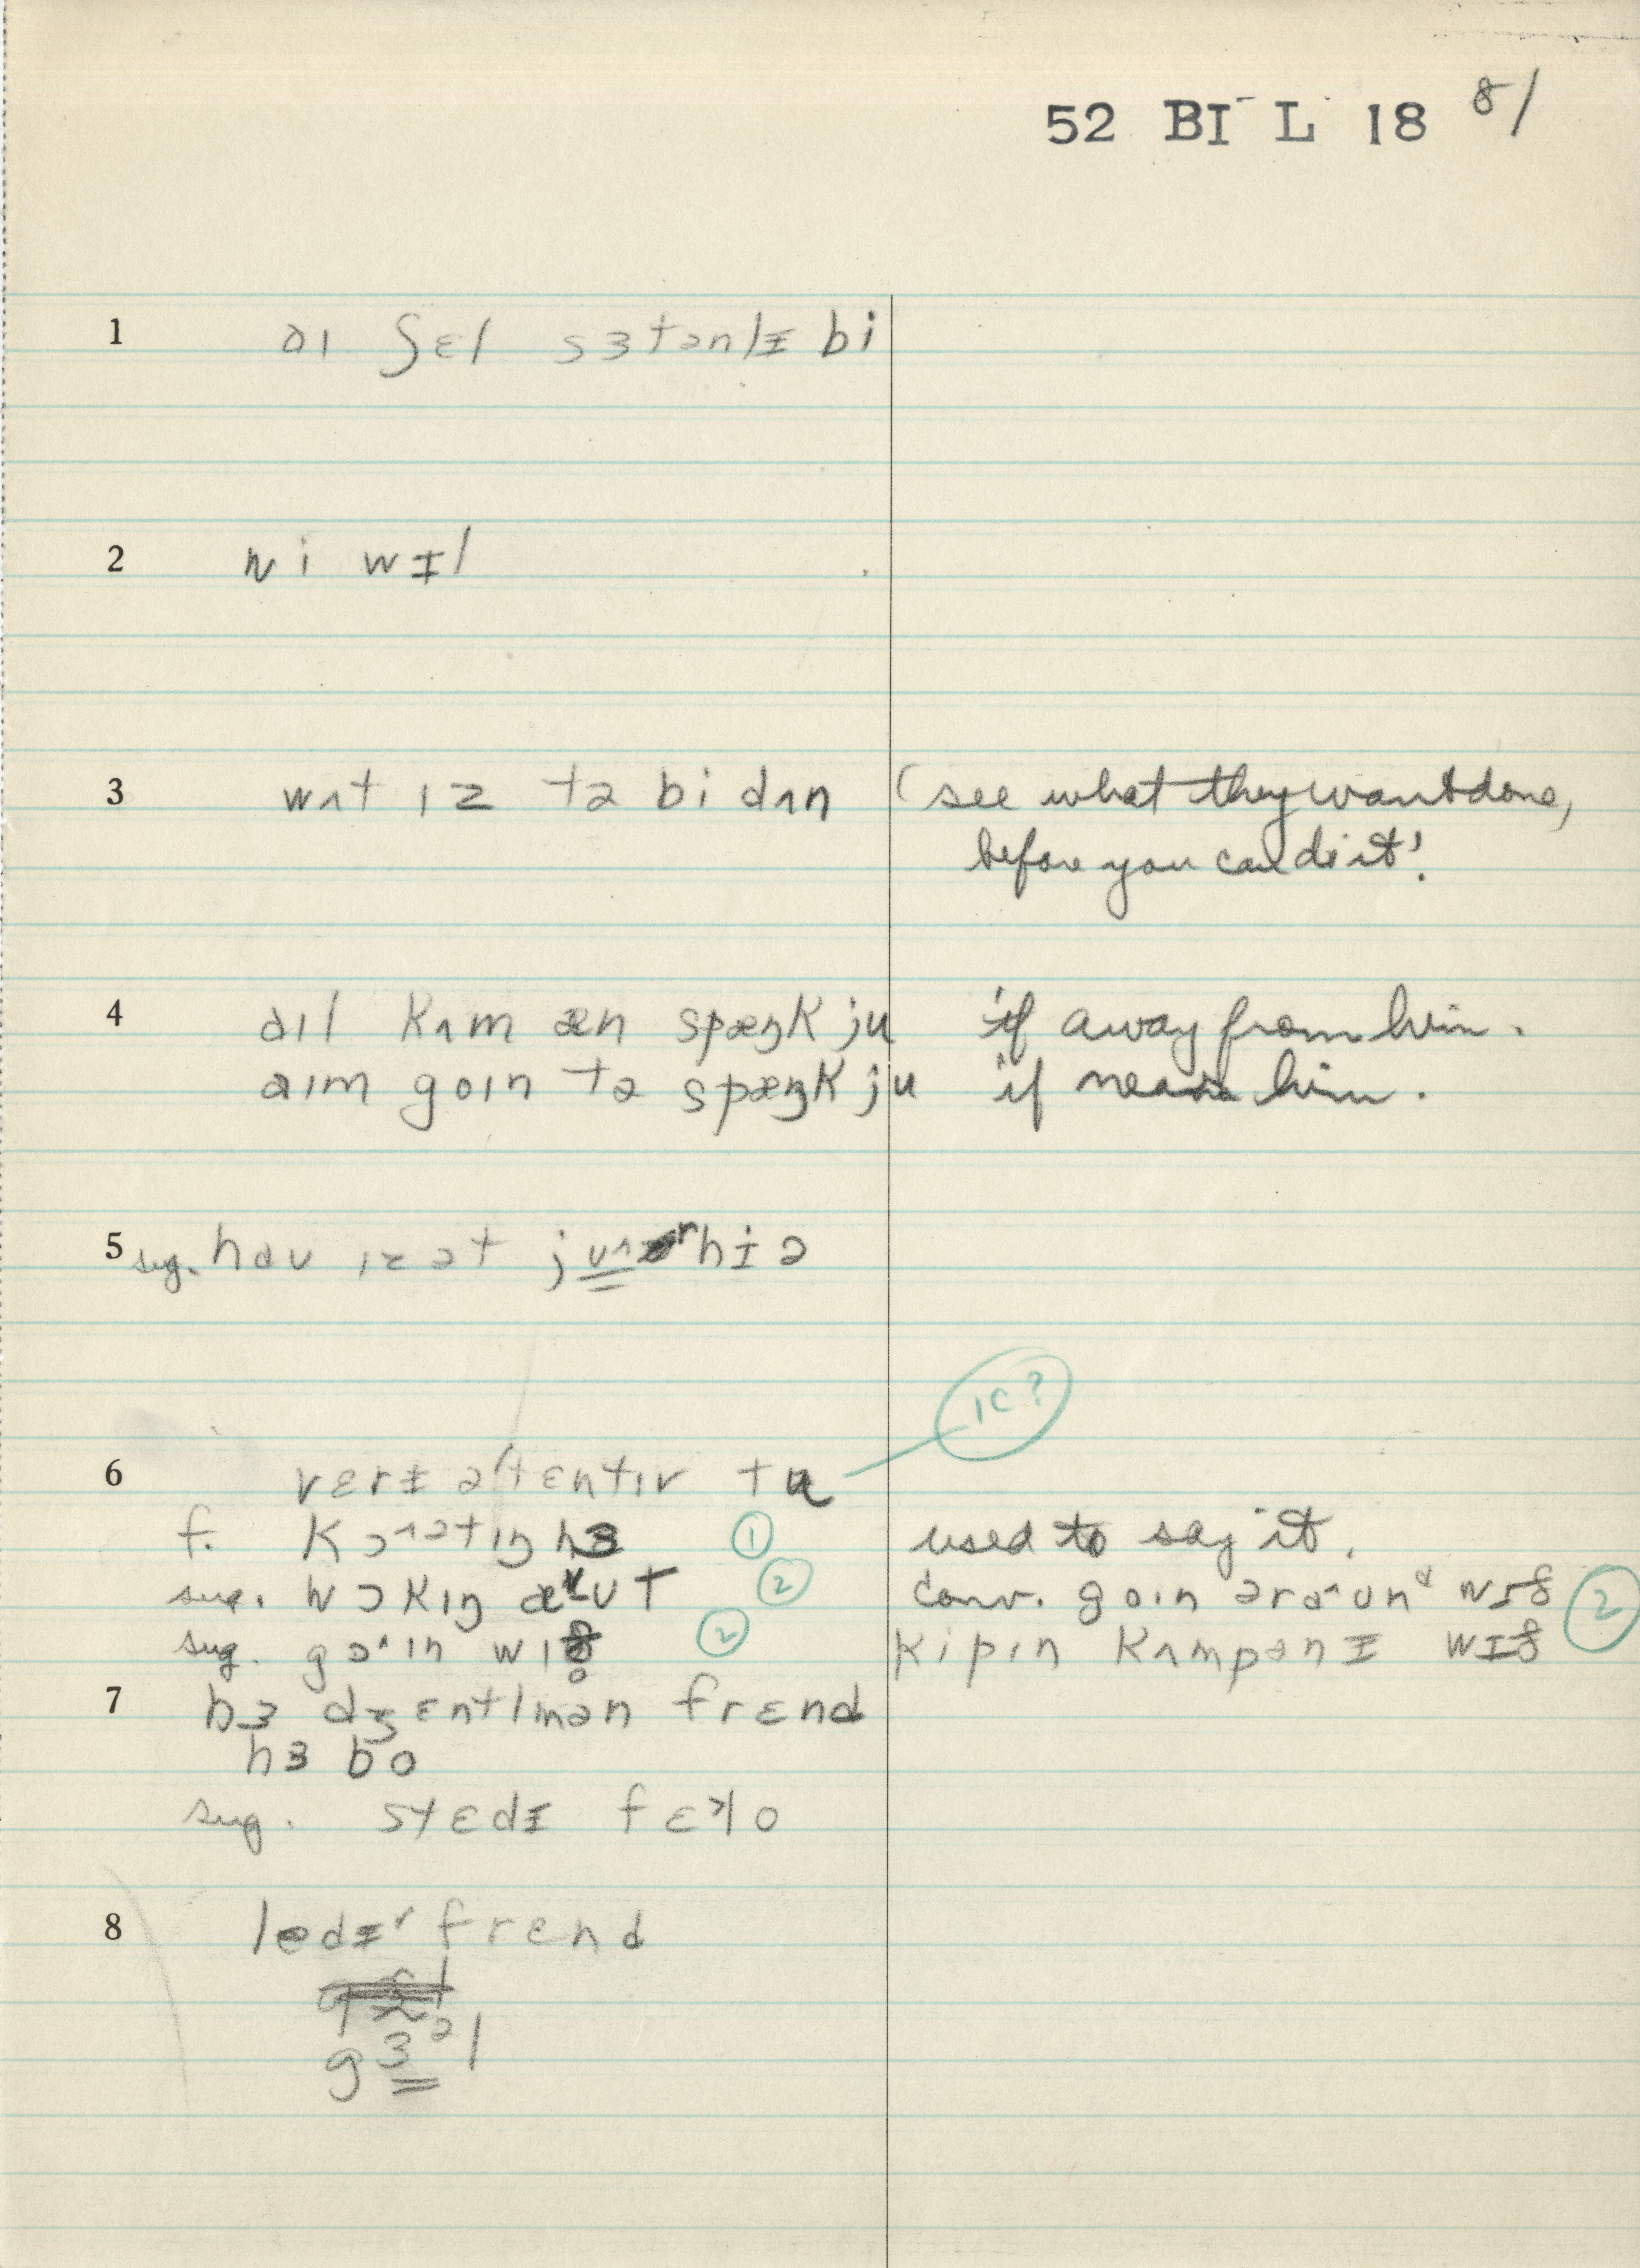 52 BI L 18 81
1 aɪ ʃɛl sɜtənlɪ bi
2 wi wɪl
3 wʌt ɪz tə bi dʌn (see what they want done,
before you can do it!
4 aɪl kʌm æn spæŋk ju if away from him.
aɪm goɪn tə spæŋk ju if near him.
5 sug. haʊ ɪz ət hɪə
6 vɛrɪ ətɛntɪv tu IC?
f. hɜ ① used to say it.
sug. wɔkɪŋ ② conv. goɪn wɪð ②
sug. ② kipɪn kʌmpənɪ wɪð
7 hɜ dʒɛntlmən frɛnd
hɜ bo
sug. stɛdɪ
8 frɛnd
gɜᵊl